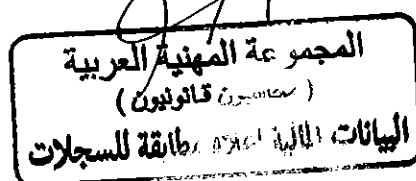 المجموعة المهنية العربية
( محاسبون قانونيون )
البيانات المالية اعلاه مطابقة للسجلات